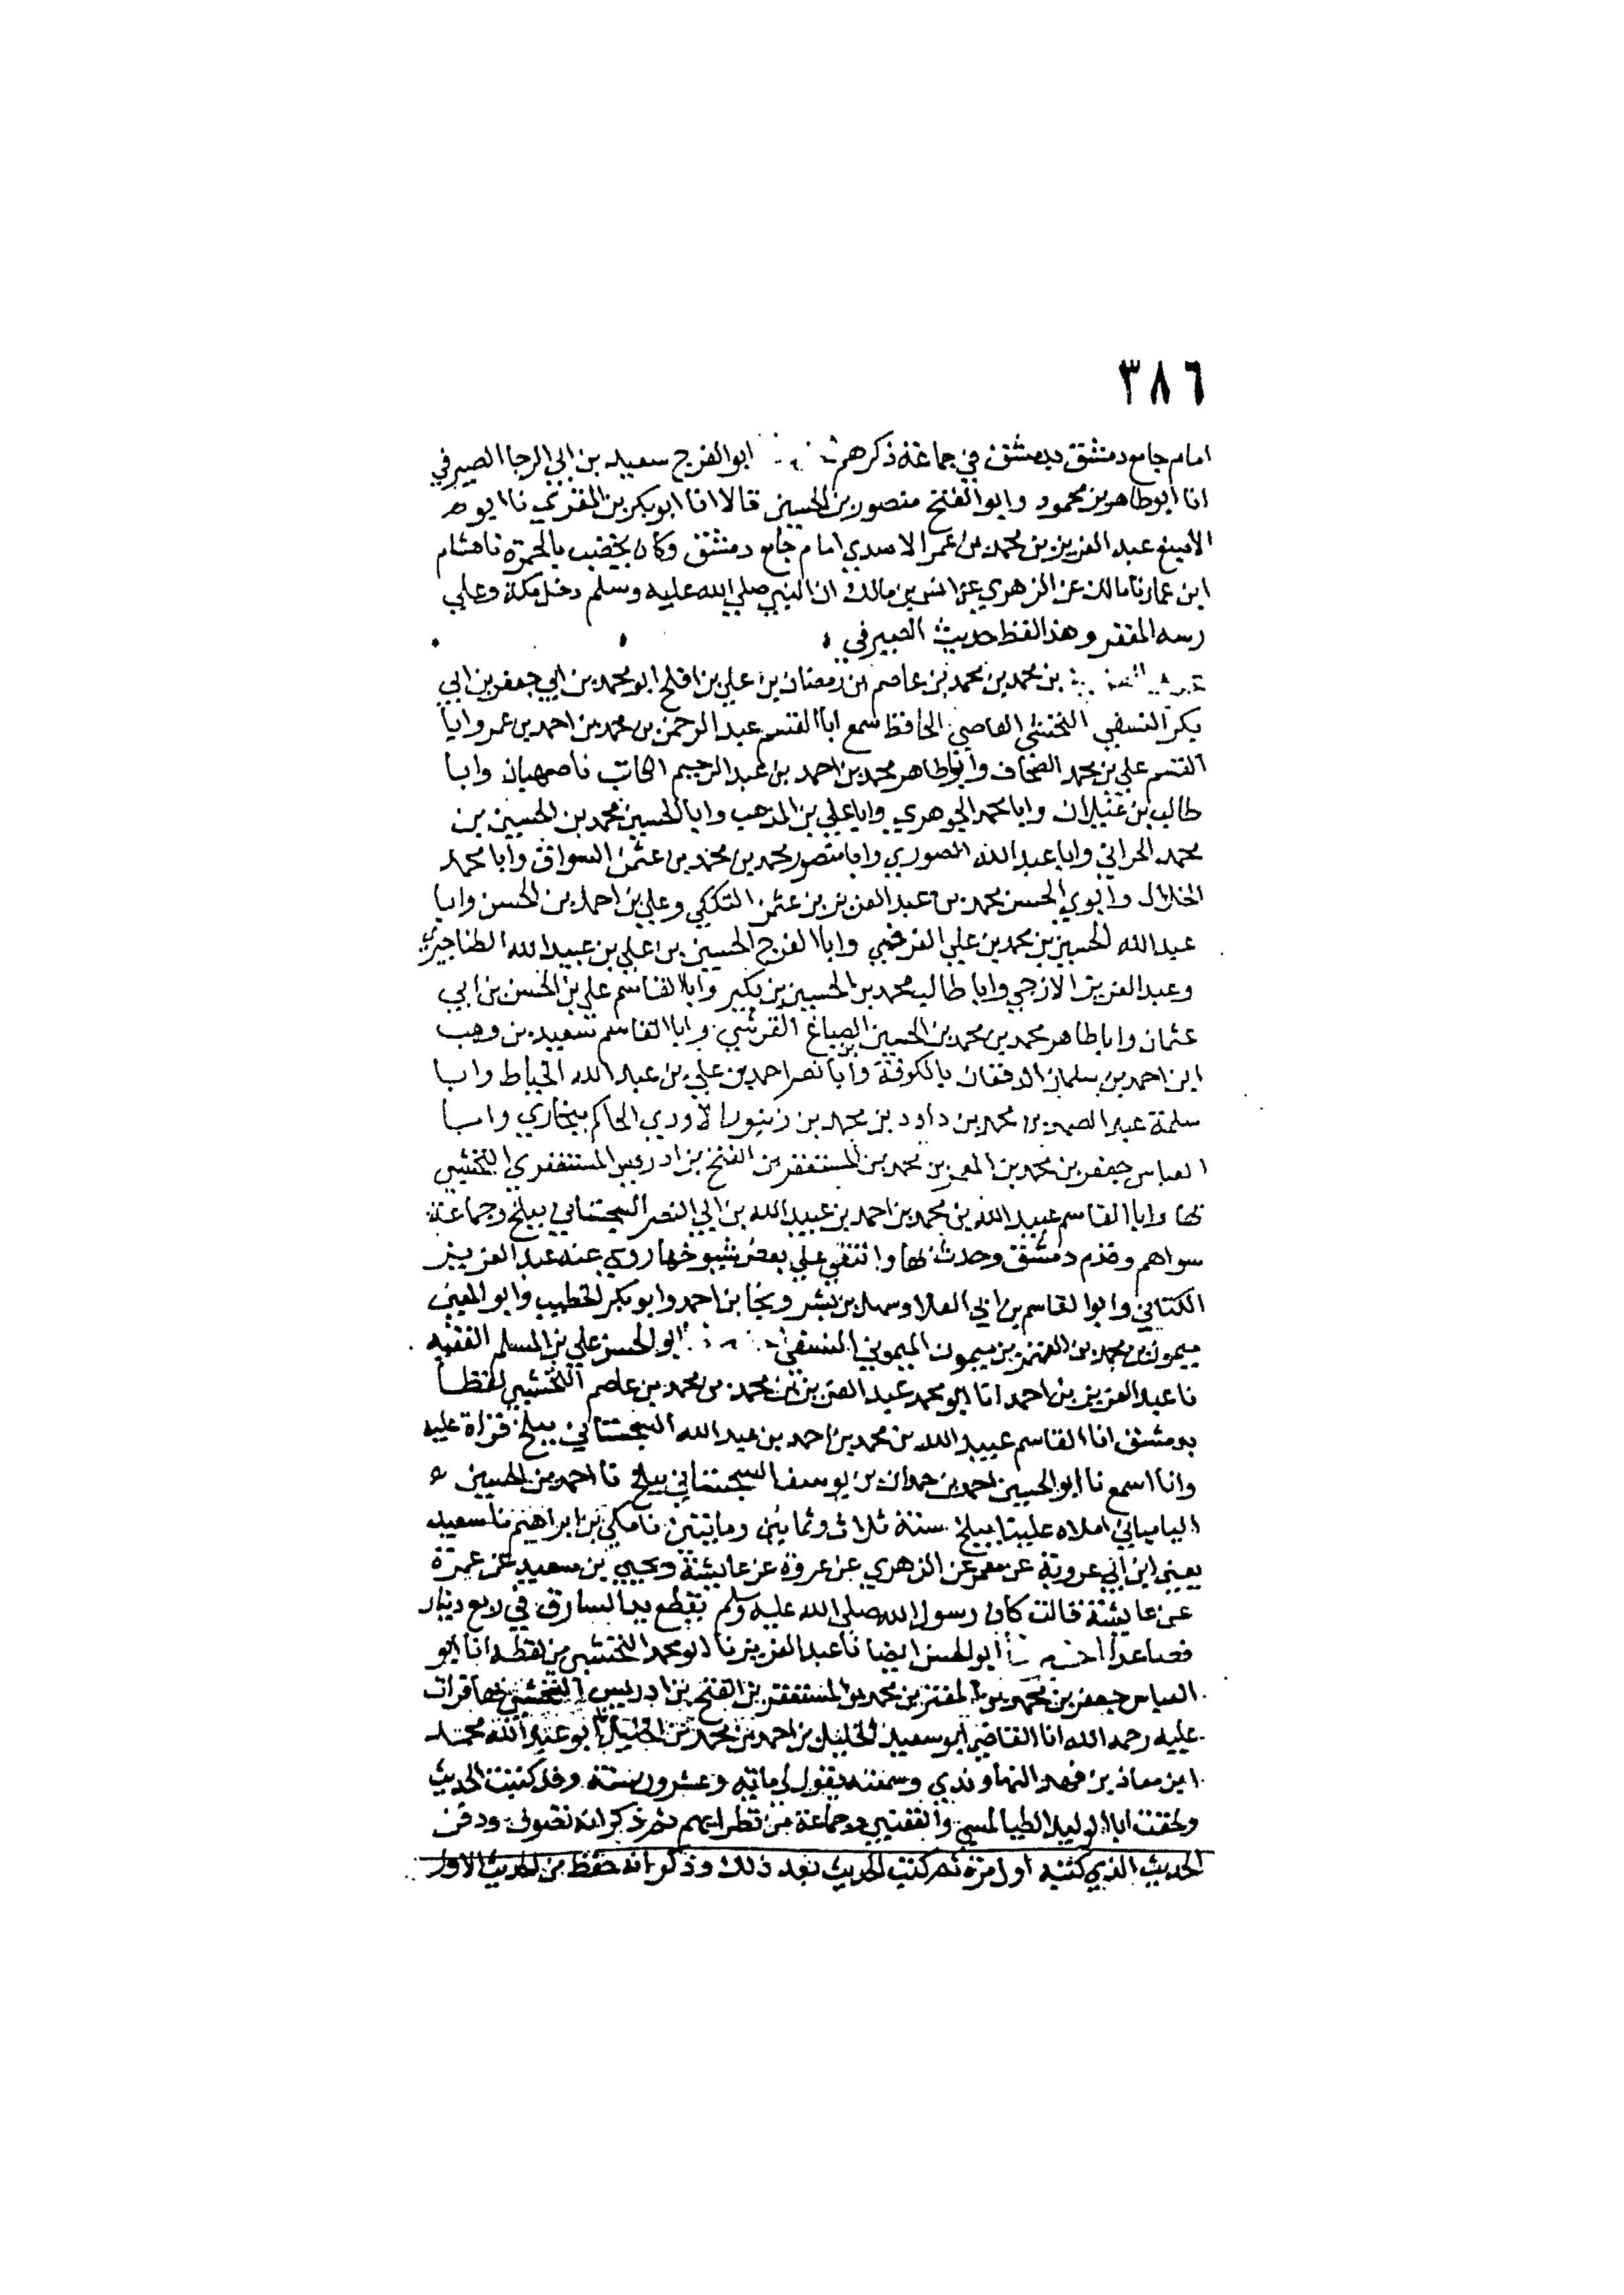 ٣٨٦
امام جامع دمشق بدمشق في جماعة ذكرهم ابو الفرج سعيد بن ابي الرجا الصيرفي
انا ابو طاهر بن محمود وابو الفتح منصور بن الحسين قالا انا ابو بكر بن المقري نا ابو
الاصبغ عبد العزيز بن محمد بن عمر الاسدي امام جامع دمشق وكان يخضب بالحمرة نا هشام
ابن عمار نا مالك عن الزهري عن انس بن مالك ان النبي صلي الله عليه وسلم دخل مكة وعلي
رسه المغفر وهذا لفظ حديث الصيرفي
بن محمد بن محمد بن عاصم بن رمضان بن علي بن افلح ابو محمد بن ابي جعفر بن ابي
بكر النسفي النخشبي العاصمي الحافظ سمع ابا القسم عبد الرحمن بن محمد بن احمد بن عمر وابا
القسم علي بن محمد الصحاف وابو طاهر محمد بن احمد بن عبد الرحيم الكاتب باصبهان وابا
طالب بن غيلان وابا محمد الجوهري وابا علي بن المذهب وابا الحسين محمد بن الحسين بن
محمد الحراني وابا عبد الله الصوري وابا منصور محمد بن محمد بن عثمن السواق وابا محمد
الخلال وابوي الحسن محمد بن عبد العزيز بن عثمن التككي وعلي بن احمد بن الحسن وابا
عبد الله الحسين بن محمد بن علي الفرضي وابا الفرج الحسين بن علي بن عبيد الله الطناجيري
وعبد العزيز الازجي وابا طالب محمد بن الحسين بن بكير وابا القاسم علي بن الحسن بن ابي
عثمان وابا طاهر محمد بن محمد بن الحسين الصباغ القرشي وابا القاسم سعيد بن وهب
ابن احمد بن سلمان الدهقان بالكوفة وابا نصر احمد بن علي بن عبد الله الخياط وابا
سلمة عبد الصمد بن محمد بن داود بن محمد بن الاودي الحاكم ببخاري وابا
العباس جعفر بن محمد بن المعتز بن محمد بن المستغفر بن الفتح بن ادريس المستغفري النخشبي
بها وابا القاسم عبيد الله بن محمد بن احمد بن عبيد الله بن ابي النصر السجستاني ببلخ وجماعة
سواهم وقدم دمشق وحدث بها وانتقي علي بعض شيوخها روي عنه عبد العزيز
الكتاني وابو القاسم بن ابي العلا وسهل بن بشر ونجا بن احمد وابو بكر الخطيب وابو المعين
ميمون بن محمد بن المعتمر بن ميمون الميموني النسفي ابو الحسن علي بن المسلم الفقيه
نا عبد العزيز بن احمد انا ابو محمد عبد العزيز بن محمد بن محمد بن عاصم النخشبي لفظا
بدمشق انا القاسم عبيد الله بن محمد بن احمد بن عبد الله السجستاني ببلخ قراة عليه
وانا اسمع نا ابو الحسين احمد بن حمدان بن يوسف السجستاني ببلخ نا احمد بن الحسين
البامياني املاه علينا ببلخ سنة ثلاث وثمانين ومايتين نا مكي بن ابراهيم نا سعيد
يعني ابن ابي عروبة عن معمر عن الزهري عن عروة عن عايشة ويحيي بن سعيد عن عمرة
عن عايشة قالت كان رسول الله صلى الله عليه وسلم يقطع يد السارق في ربع دينار
فصاعدا ابو الحسن ايضا نا عبد العزيز نا ابو محمد النخشبي من لفظه انا ابو
العباس جعفر بن محمد بن المعتز بن محمد بن المستغفر بن الفتح بن ادريس النخشبي بها قرات
عليه رحمه الله انا القاضي ابو سعيد الخليل بن احمد بن محمد بن الخليل نا ابو عبد الله محمد
ابن معاذ بن فهد النهاوندي وسمعته يقول لي ماية وعشرون سنة وقد كتبت الحديث
ولحقت ابا الوليد الطيالسي والقعنبي وجماعة من نظرايهم ثم ذكر انه تصوف ودفن
الحديث الذي كتبه اول مرة ثم كتب الحديث بعد ذلك وذكر انه حفظ من الحديث الاول